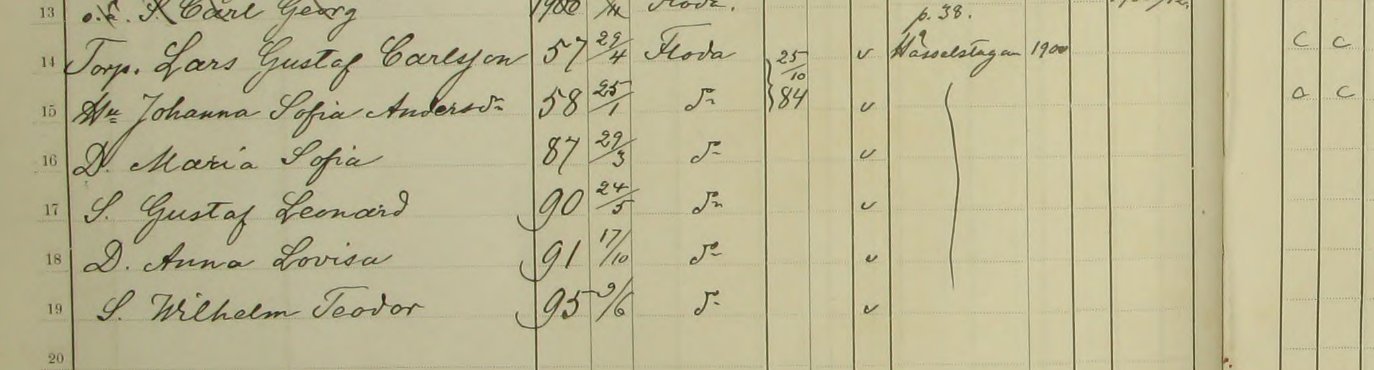 13 o.ä. S. Carl Georg 1900 Floda. p. 38.
14 Torp. Lars Gustaf Carlsson 57 29/4 Floda 25/10 v Hässelstugan 1900 c c
15 Hu Johanna Sofia Andersdr 58 25/1 do 84 v a c
16 D. Maria Sofia 87 29/3 do v
17 S. Gustaf Leonard 90 24/5 do v
18 D. Anna Lovisa 91 17/10 do v
19 S. Wilhelm Teodor 95 9/6 do v
20